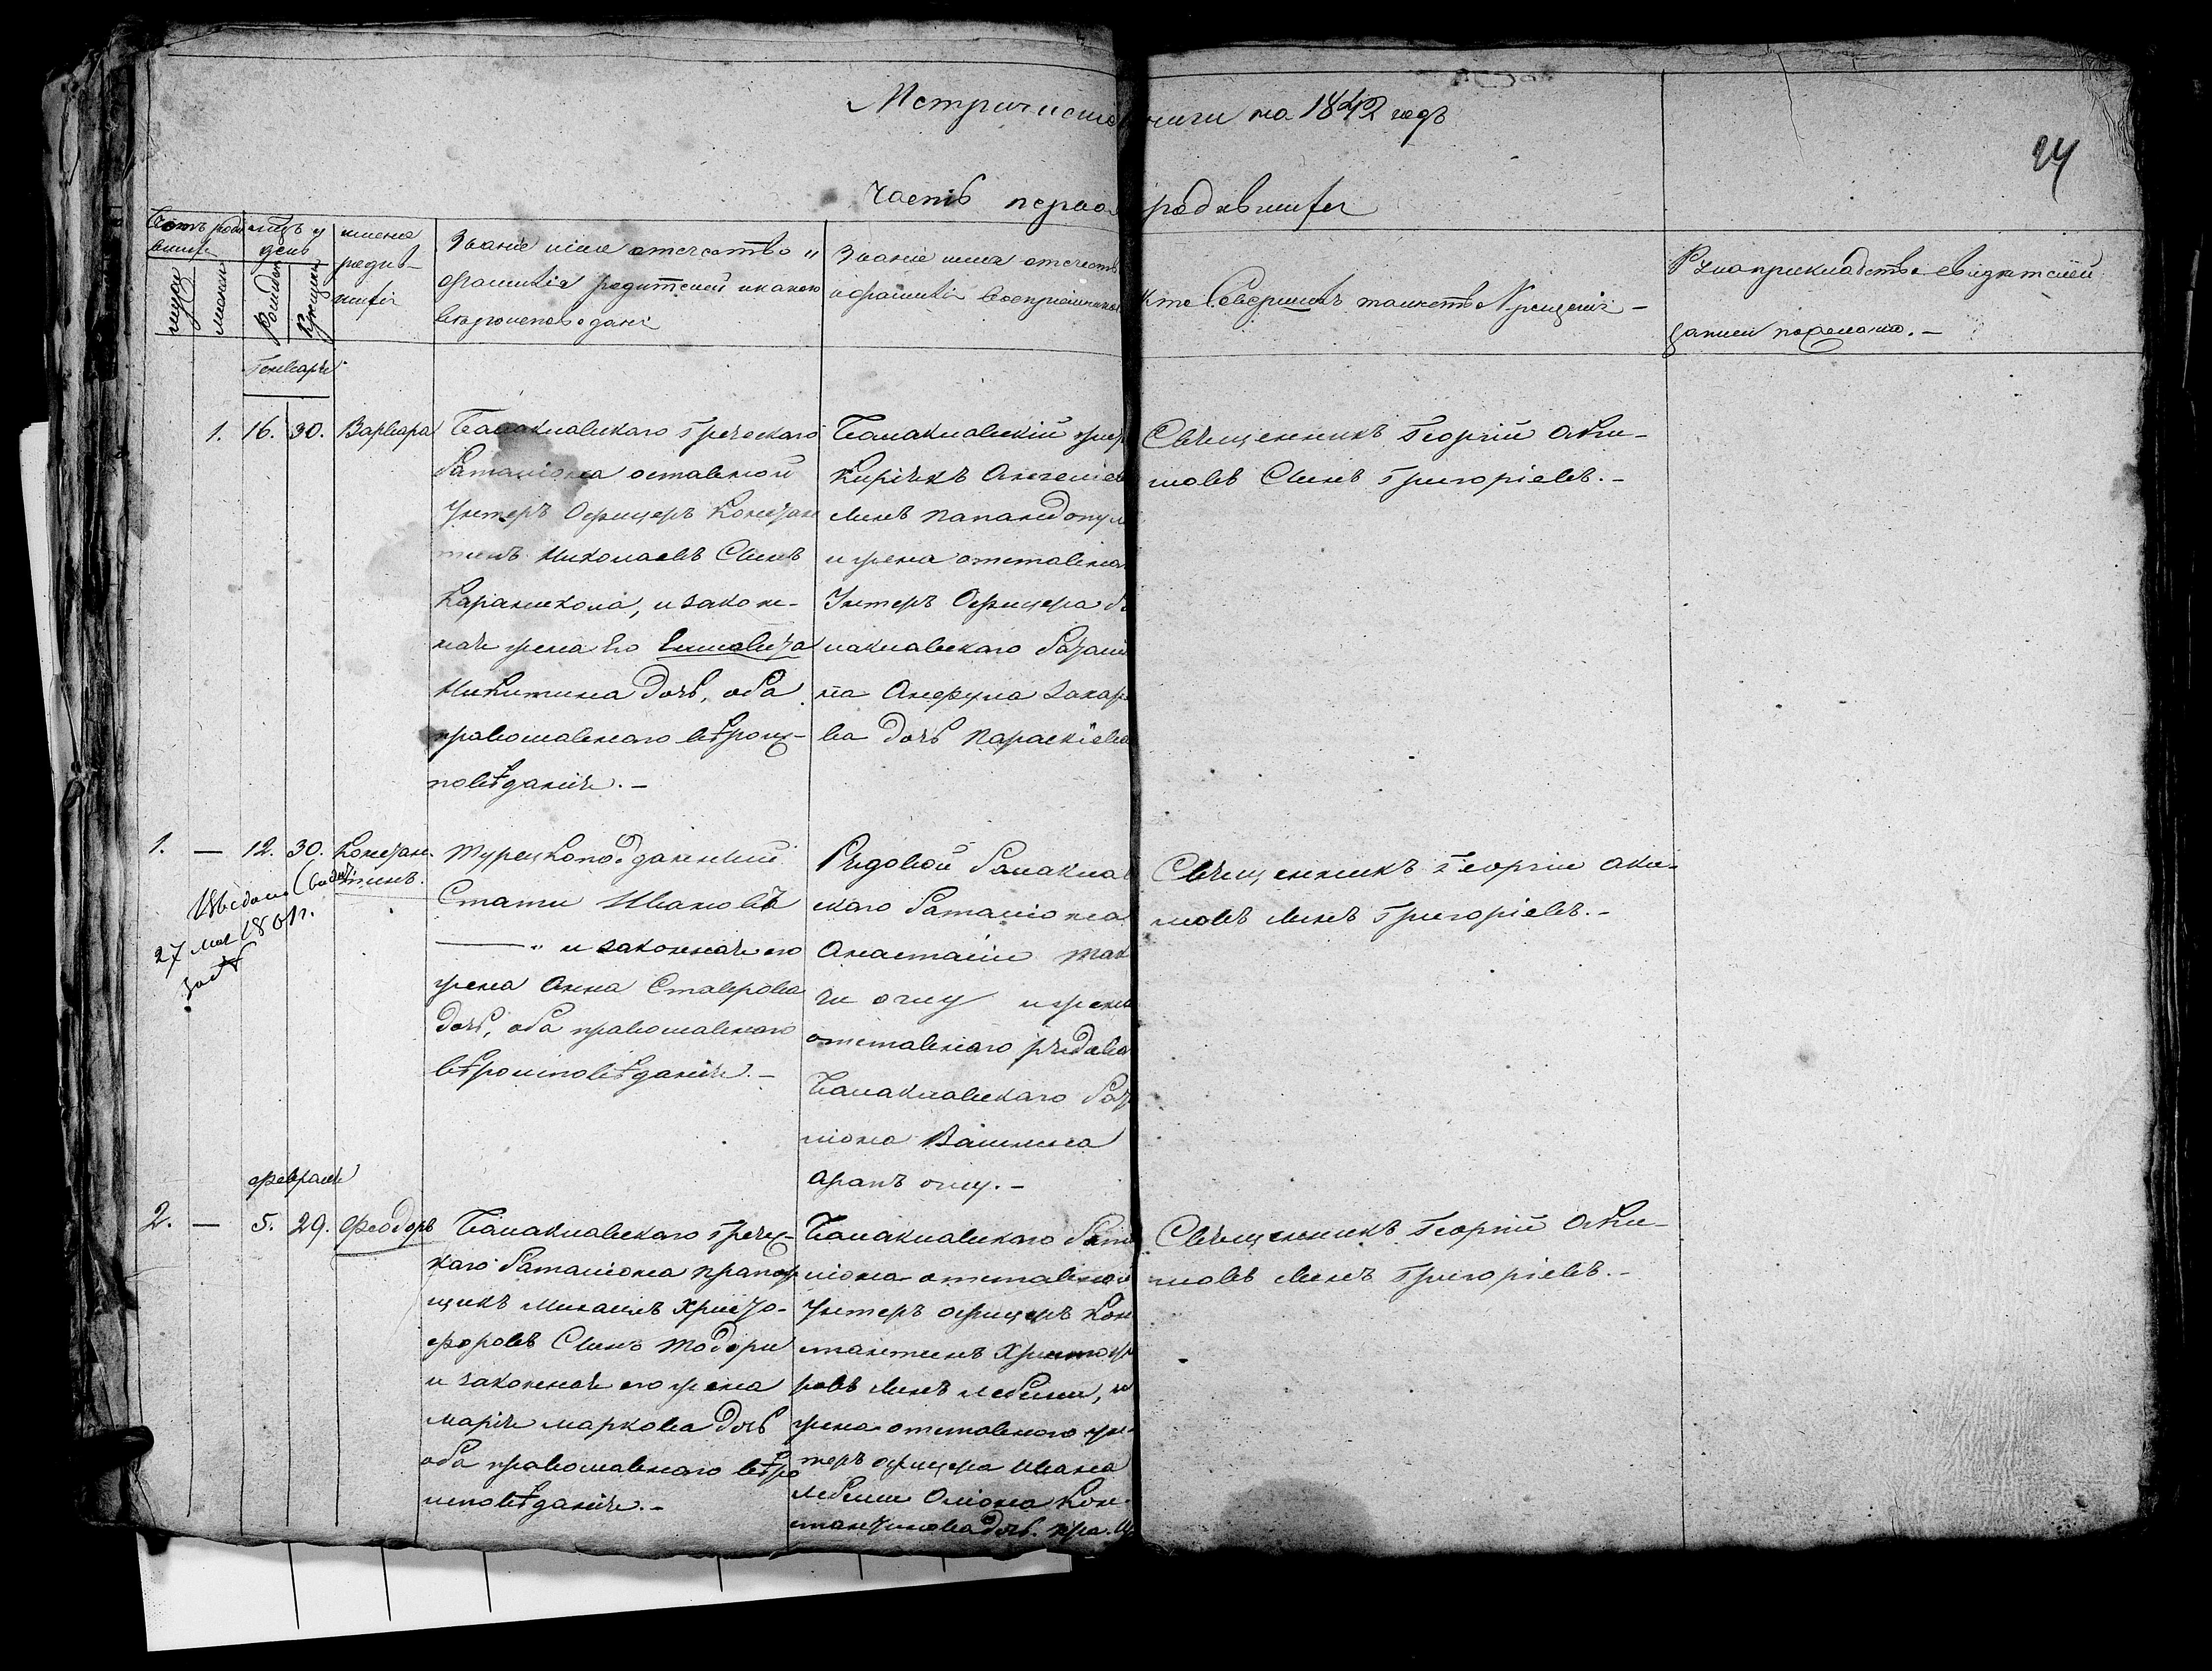 Метрической книги на 1842 годъ
24
Часть первая родившихся
Счетъ родившихся
мужес
женск
мѣсяцъ и день
Рожденія
Крещенія
имена родив-
шихся
Званіе имя отечество и
фамилія родителей и какого
вѣроисповеданія
Званіе имя отечество
и фамилія воспріемников
Кто Совершилъ таинство Крещенія –
Рукоприкладство свидѣтелей
записи по желанію. –
Генваря
1. 16. 30. Варвара
Балаклавскаго Греческаго
баталіона оставной
Унтеръ Офицеръ Констан
тинъ Николаевъ Сынъ
Караникола, и закон-
ная жена его Елисавета
Никитина дочь, оба
православнаго вѣроис-
повѣданія. –
Балаклавскій
Кирїякъ Ангелиев
сынъ Папандопул
и жена отставна
Унтеръ Офицера ба
лаклавскаго батали
на Анфула Захар
ва дочь Параскіева
Священникъ Георгій Аки-
мовъ Сынъ Григоріевъ. –
1. – 12. 30. Констан-
тинъ.
27 мая 1861 г.
Турецкоподданный
Стати Ивановъ
и законная его
жена Анна Ставрова
дочь, оба православнаго
вѣроисповѣданія. –
Рядовой балаклав
скаго баталиона
Анастасій
отставнаго рядова
Балаклавскаго бат
ліона Василиса
Арапъ оглу. –
Священникъ Георгій Аки-
мовъ сынъ Григоріевъ. –
февраля
2. – 5. 29. Феодоръ
Балаклавскаго Гречес-
каго баталиона прапор
щикъ Михаилъ Христо-
форовъ Сынъ Тодори
и законная его жена
Марія Маркова дочь
оба православнаго вѣро
исповѣданія. –
Балаклавскаго бата
ліона отставной
Унтеръ офицеръ Кон
стантинъ Христофо
ровъ сынъ и
жена отставного ун-
теръ офицера Ивана
Кон-
стантинова дочь.
Священникъ Георгій Аки-
мовъ сынъ Григоріевъ. –